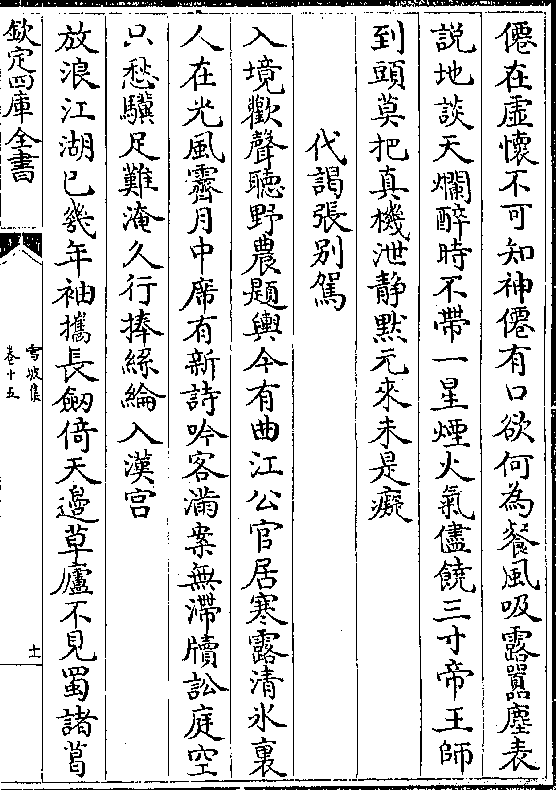 僊在虛懷不可知神僊有口欲何為餐風吸露嚚塵表
説地談天爛醉時不帶一星煙火氣儘饒三寸帝王師
到頭莫把真機泄静黙元來未是癡
代謁張别駕
入境歡聲聽野農題輿今有曲江公官居寒露清氷裏
人在光風霽月中席有新詩吟客滿案無滯牘訟庭空
只愁驥足難淹久行捧絲綸入漢宫
放浪江湖已幾年袖攜長劒倚天邊草廬不見蜀諸葛
欽定四庫全書
雪坡集
卷十五
十一